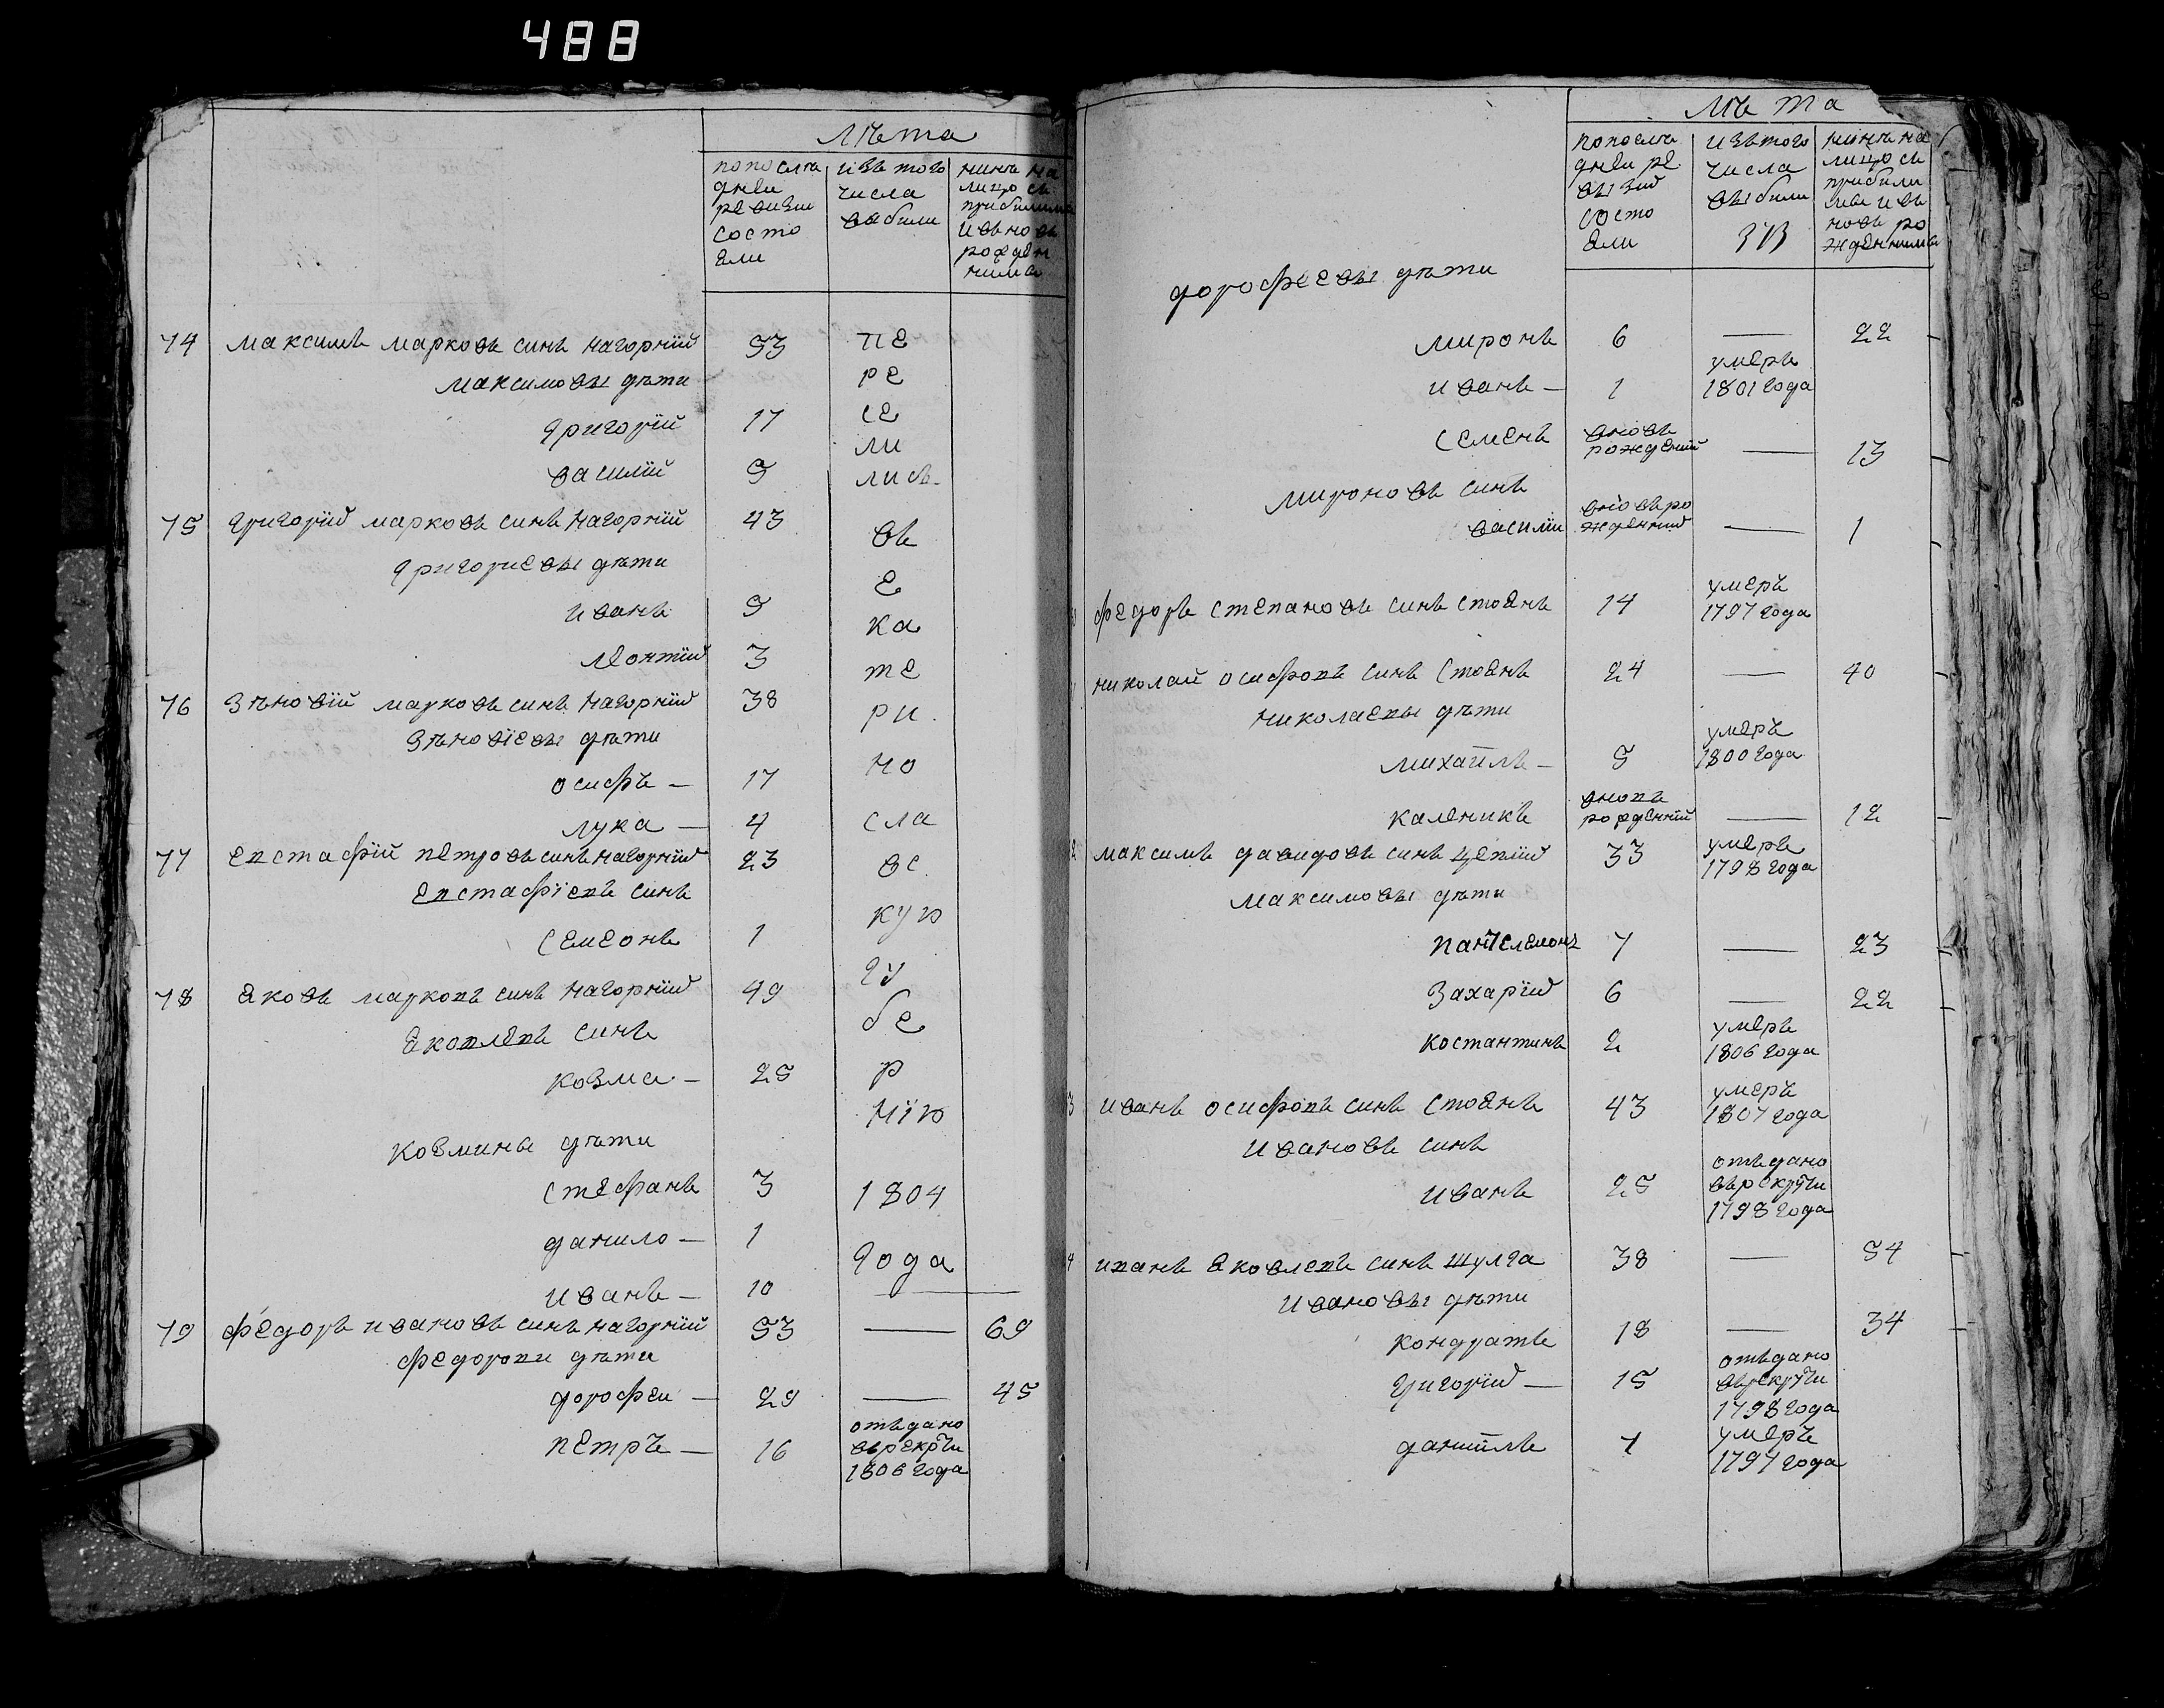 488
лѣта
попослѣ дней ревизии состояли
изъ того числа выбили
нинѣ налицо съ прибилими и вновь рожденними
74 максимъ марковъ синъ нагорній 53
максимовы дѣти
григорій 17
василій 9
75 григорій марковъ синъ нагорній 43
григориевы дѣти
иванъ 9
леонтій 3
76 зѣновій марковъ синъ нагорній 38
зѣновіевы дѣти
осифъ — 17
лука — 4
77 евстафій петровъ синъ нагорній 23
евстафіевъ синъ
семеонъ 1
78 яковъ марковъ синъ нагорній 49
яковлевъ синъ
козма — 25
козмини дѣти
стефанъ 3
данило — 1
иванъ — 10
пе
ре
се
ли
лись
въ
е
ка
те
ри
но
сла
вс
кую
гу
бе
р
нію
1804
года
79 федоръ ивановъ синъ нагорній 53 — 69
федорови дѣти
дорофеи — 29 — 45
петръ — 16 отъдано върекруты 1806 года
лѣта
попослѣ дней ревызий состояли
изъ того числа выбили
нинѣ налицо съ прибили ми и вновь рожденними
дорофеевы дѣти
миронъ 6 — 22
иванъ — 1 умеръ 1801 года
семенъ вновь рожденій — 13
мироновъ синъ
василіи вновь рожденний — 1
федоръ степановъ синъ стоянъ 14 умеръ 1797 года
николай осифовъ синъ стоянъ 24 — 40
николаевы дѣти
михаилъ — 9 умеръ 1800 года
каленикъ вновъ рожденній — 12
максимъ давидовъ синъ цеплий 33 умеръ 1798 года
максимовы дѣти
пантелемонъ 7 — 23
захарій 6 — 22
костантинъ 2 умеръ 1806 года
3 иванъ осифовъ синъ стоянъ 43 умеръ 1807 года
ивановъ синъ
иванъ 25 отъдано върекруты 1798 года
4 иванъ яковлевъ синъ шулга 38 — 54
ивановы дѣти
кондратъ 18 — 34
григорій — 15 отъдано върекруты 1798 года
даниилъ 7 умеръ 1797 года